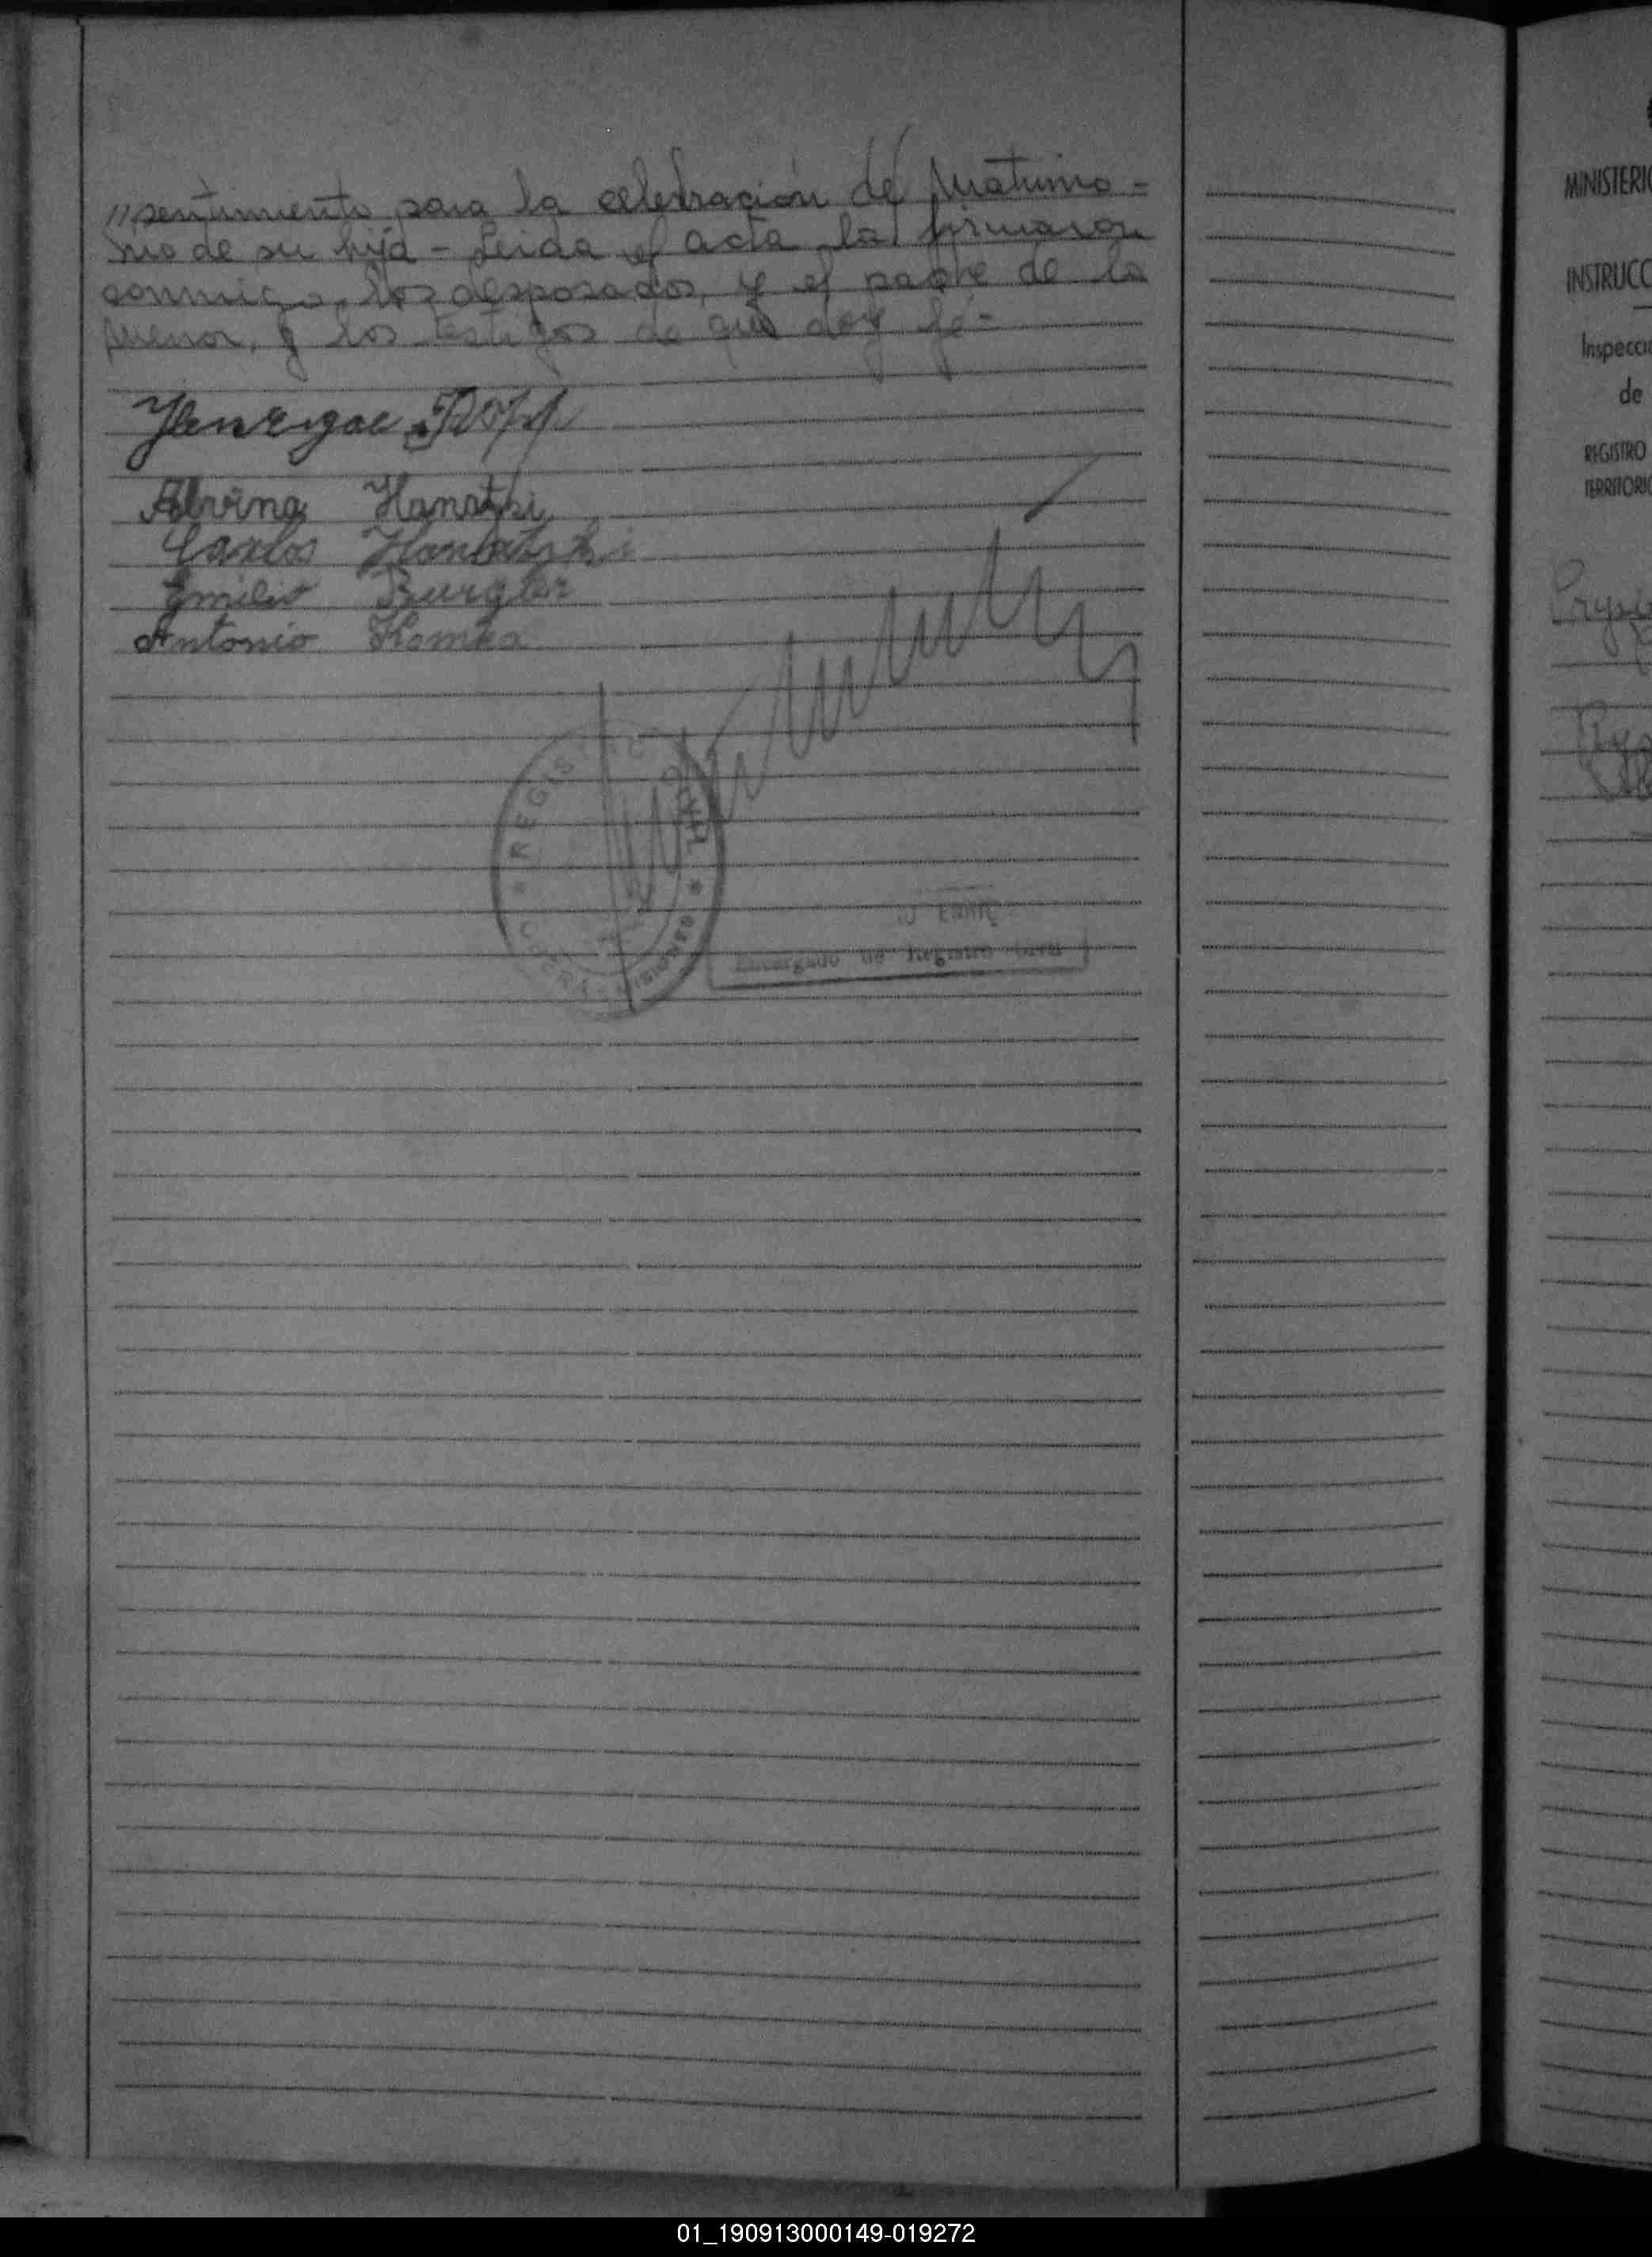 "sentimiento para la celebración de Matrimo-
nio de su hija - Leida el acta la firmaron
conmigo, los desposados, y el padre de la
menor, y los testigos de que doy fé-
Alvina Hanatzki
Carlos
Emilio Burgler
Antonio
* REGISTRO CIVIL *
MISIONES
Encargado de Registro Civil
MINISTERI
INSTRUCC
Inspecci
de
REGISTRO
TERRITORI
01_190913000149-019272